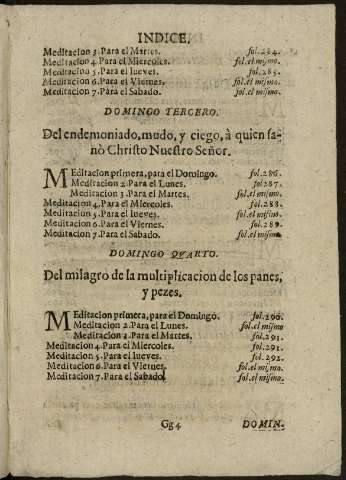 INDICE.
Meditacion 3. Para el Martes. fol.284.
Meditacion 4. Para el Miercoles. fol.el mismo.
Meditacion 5. Para el Iueves. fol.285.
Meditacion 6. Para el Viernes. fol.el mismo.
Meditacion 7. Para el Sabado. fol.el mismo.
DOMINGO TERCERO.
Del endemoniado, mudo, y ciego, à quien sa-
nò Christo Nuestro Señor.
Meditacion primera, para el Domingo. fol.286.
Meditacion 2. Para el Lunes. fol 287.
Meditacion 3. Para el Martes. fol.el mismo.
Meditacion 4. Para el Miercoles. fol.288.
Meditacion 5. Para el Iueves. fol.el mismo.
Meditacion 6. Para el Viernes. fol.289.
Meditacion 7. Para el Sabado. fol.el mismo.
DOMINGO QVARTO.
Del milagro de la multiplicacion de los panes,
y pezes.
Meditacion primera, para el Domingo. fol.290.
Meditacion 2. Para el Lunes. fol.el mismo
Meditacion 3. Para el Martes. fol.291.
Meditacion 4. Para el Miercoles. fol.291.
Meditacion 5. Para el Iueves. fol.292.
Meditacion 6. Para el Viernes. fol.el mismo.
Meditacion 7. Para el Sabado. fol.el mismo.
Gg4 DOMIN-